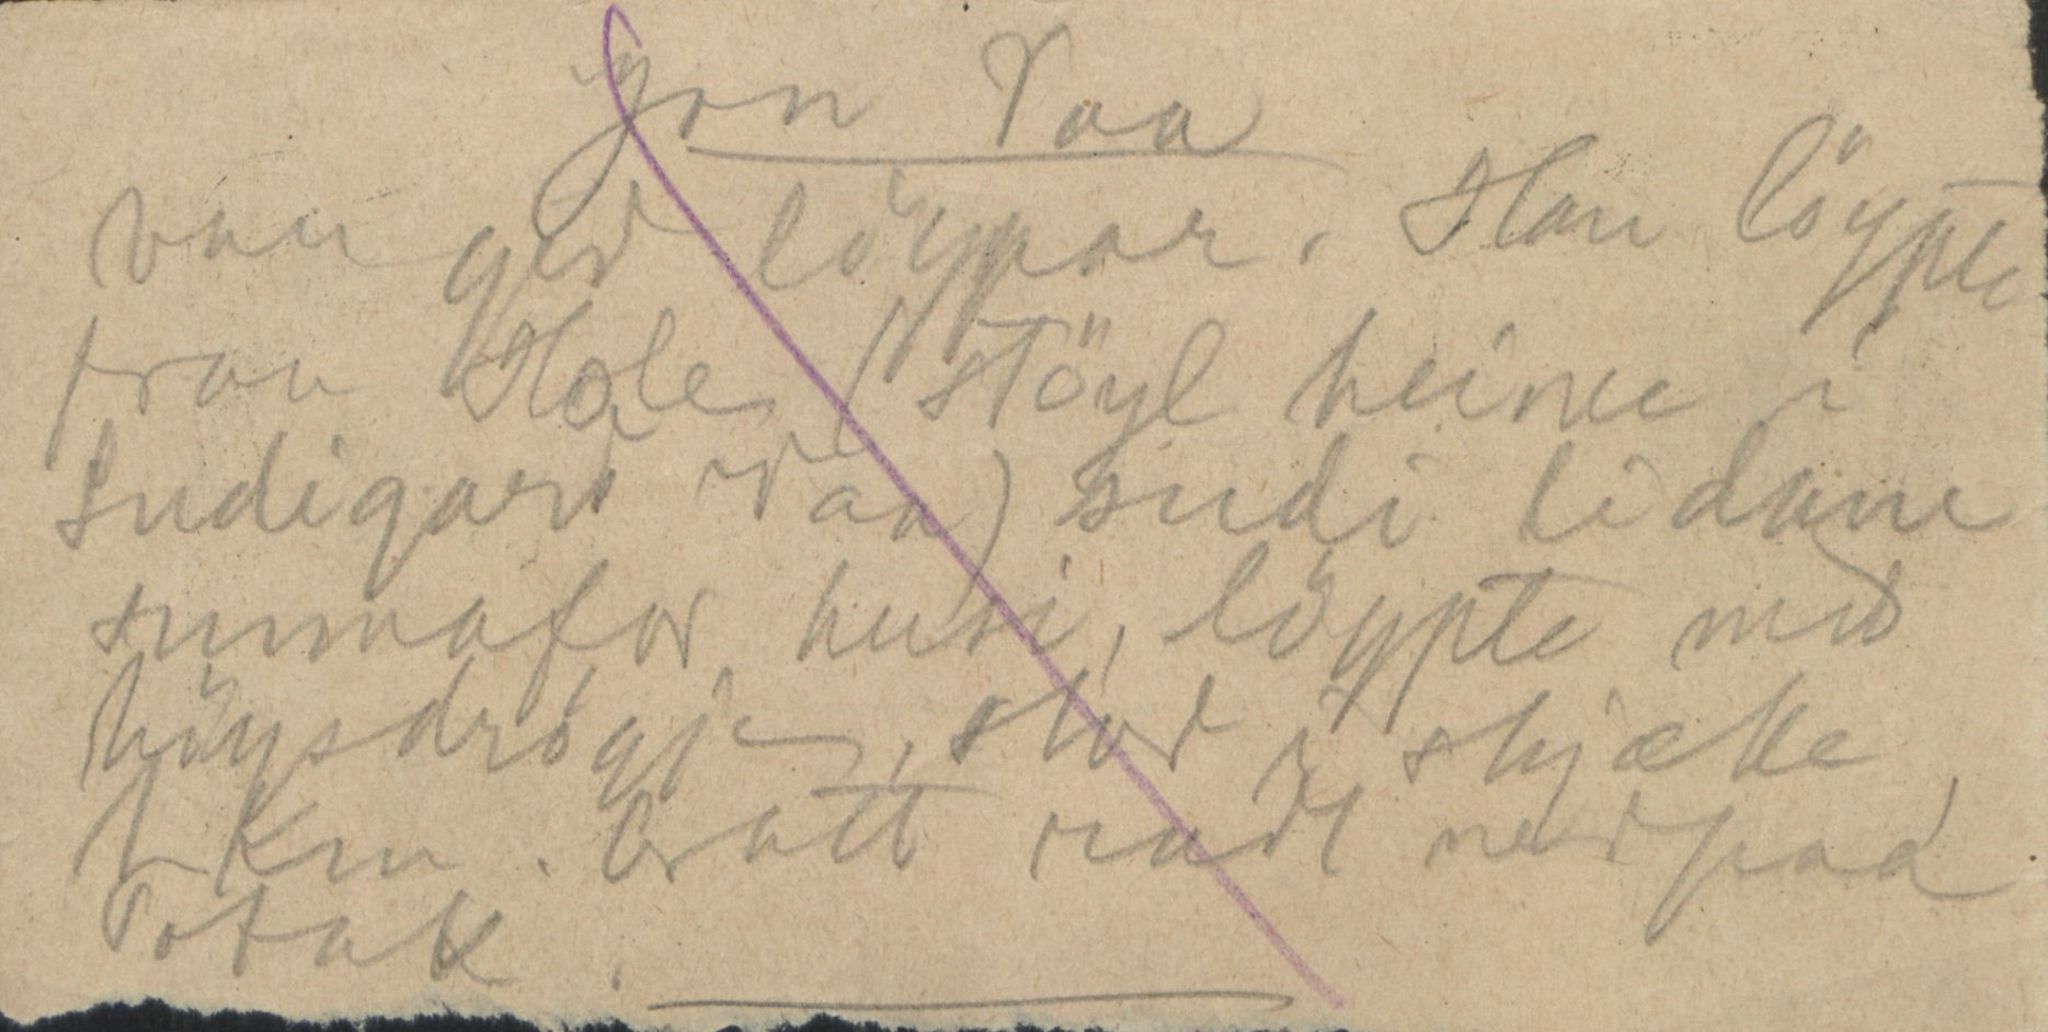 Jon Vaa
van god löypar. Han löypte
fraa Hole (stöyl heime i
Sudigard Vaa) sudi lidane
sunnafor husi, löypte med
höysdrögje, stod i skjæke
1 Km. bratt radt nedpaa
Totak.